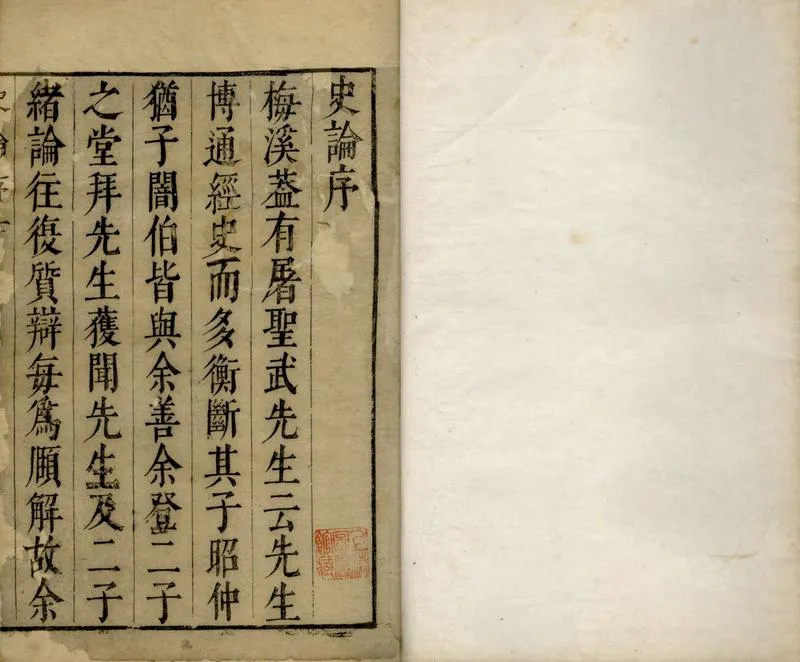 史論序
梅溪葢有屠聖武先生云先生
博通經史而多衡斷其子昭仲
猶子闇伯皆與余善余登二子
之堂拜先生獲聞先生及二子
緒論往復質辯每爲頤解故余